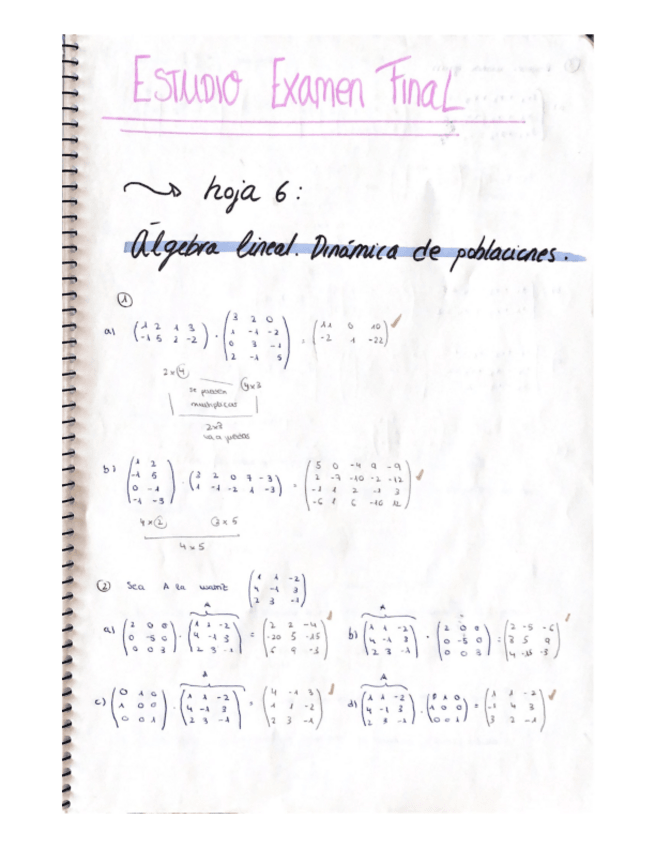 ESTUDIO Examen Final
hoja 6:
Álgebra lineal. Dinámica de poblaciones.
①
a) (1 2 1 3 / -1 5 2 -2) · (3 2 0 / 1 -1 -2 / 0 3 -1 / 2 -1 5) = (11 0 10 / -2 1 -22)
2x4 4x3
se pueden
multiplicar
2x3
b) (1 2 / -1 5 / 0 -1 / -1 -3) · (3 2 0 7 -3 / 1 -1 -2 1 -3) = (5 0 -4 9 -9 / 2 -7 -10 -2 -12 / -1 1 2 -1 3 / -6 1 6 -10 12)
4x2 2x5
4x5
② Sea A la matriz (1 1 -2 / 4 -1 3 / 2 3 -1)
a) (2 0 0 / 0 -5 0 / 0 0 3) · A (1 1 -2 / 4 -1 3 / 2 3 -1) = (2 2 -4 / -20 5 -15 / 6 9 -3)
b) A (1 1 -2 / 4 -1 3 / 2 3 -1) · (2 0 0 / 0 -5 0 / 0 0 3) = (2 -5 -6 / 8 5 9 / 4 -15 -3)
c) (0 1 0 / 1 0 0 / 0 0 1) · A (1 1 -2 / 4 -1 3 / 2 3 -1) = (4 -1 3 / 1 1 -2 / 2 3 -1)
d) A (1 1 -2 / 4 -1 3 / 2 3 -1) · (0 1 0 / 1 0 0 / 0 0 1) = (1 1 -2 / -1 4 3 / 3 2 -1)